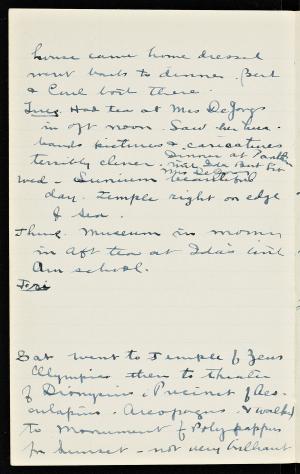 house came home dressed
went back to dinner. Bert
& Carl both there.
Tues. Had tea at Mrs DeJongs
in aft noon. Saw her hus-
bands pictures & caricatures
terribly clever. Dinner at
with Ida Bert
Mrs DeJong
Wed - Sunium beautiful
day. Temple right on edge
of sea.
Thurs. Museum in morn
in aft tea at Ida's with
Am school.
Fri
Sat went to Temple of Zeus
Olympius then to theater
of Dionysius, Precinct of Aes-
culapius. Areopagus. & walked
to Monument of Polypappus
for Sunset - not very brilliant